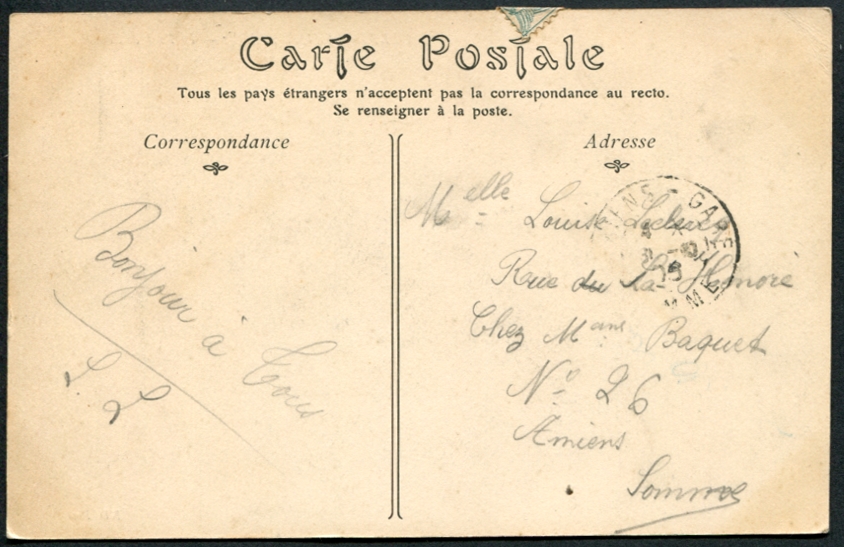 Carte Postale
Tous les pays étrangers n'acceptent pas la correspondance au recto.
Se renseigner à la poste.
Correspondance
Bonjour à
Tous
L L
Adresse
Melle Louise
Rue du St Honoré
Chez Mame Baquet
No 26
Amiens
Somme
ENS - GARE
MME